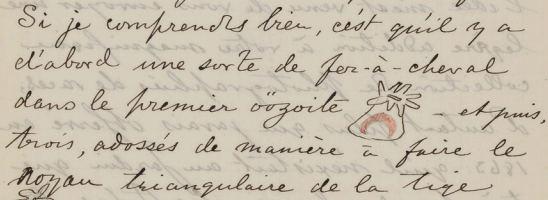 Si je comprends bien, c'est qu'il y a
d'abord une sorte de fer-à-cheval
dans le premier öözoïte - et puis,
trois, adossés de manière à faire le
Noyau triangulaire de la tige